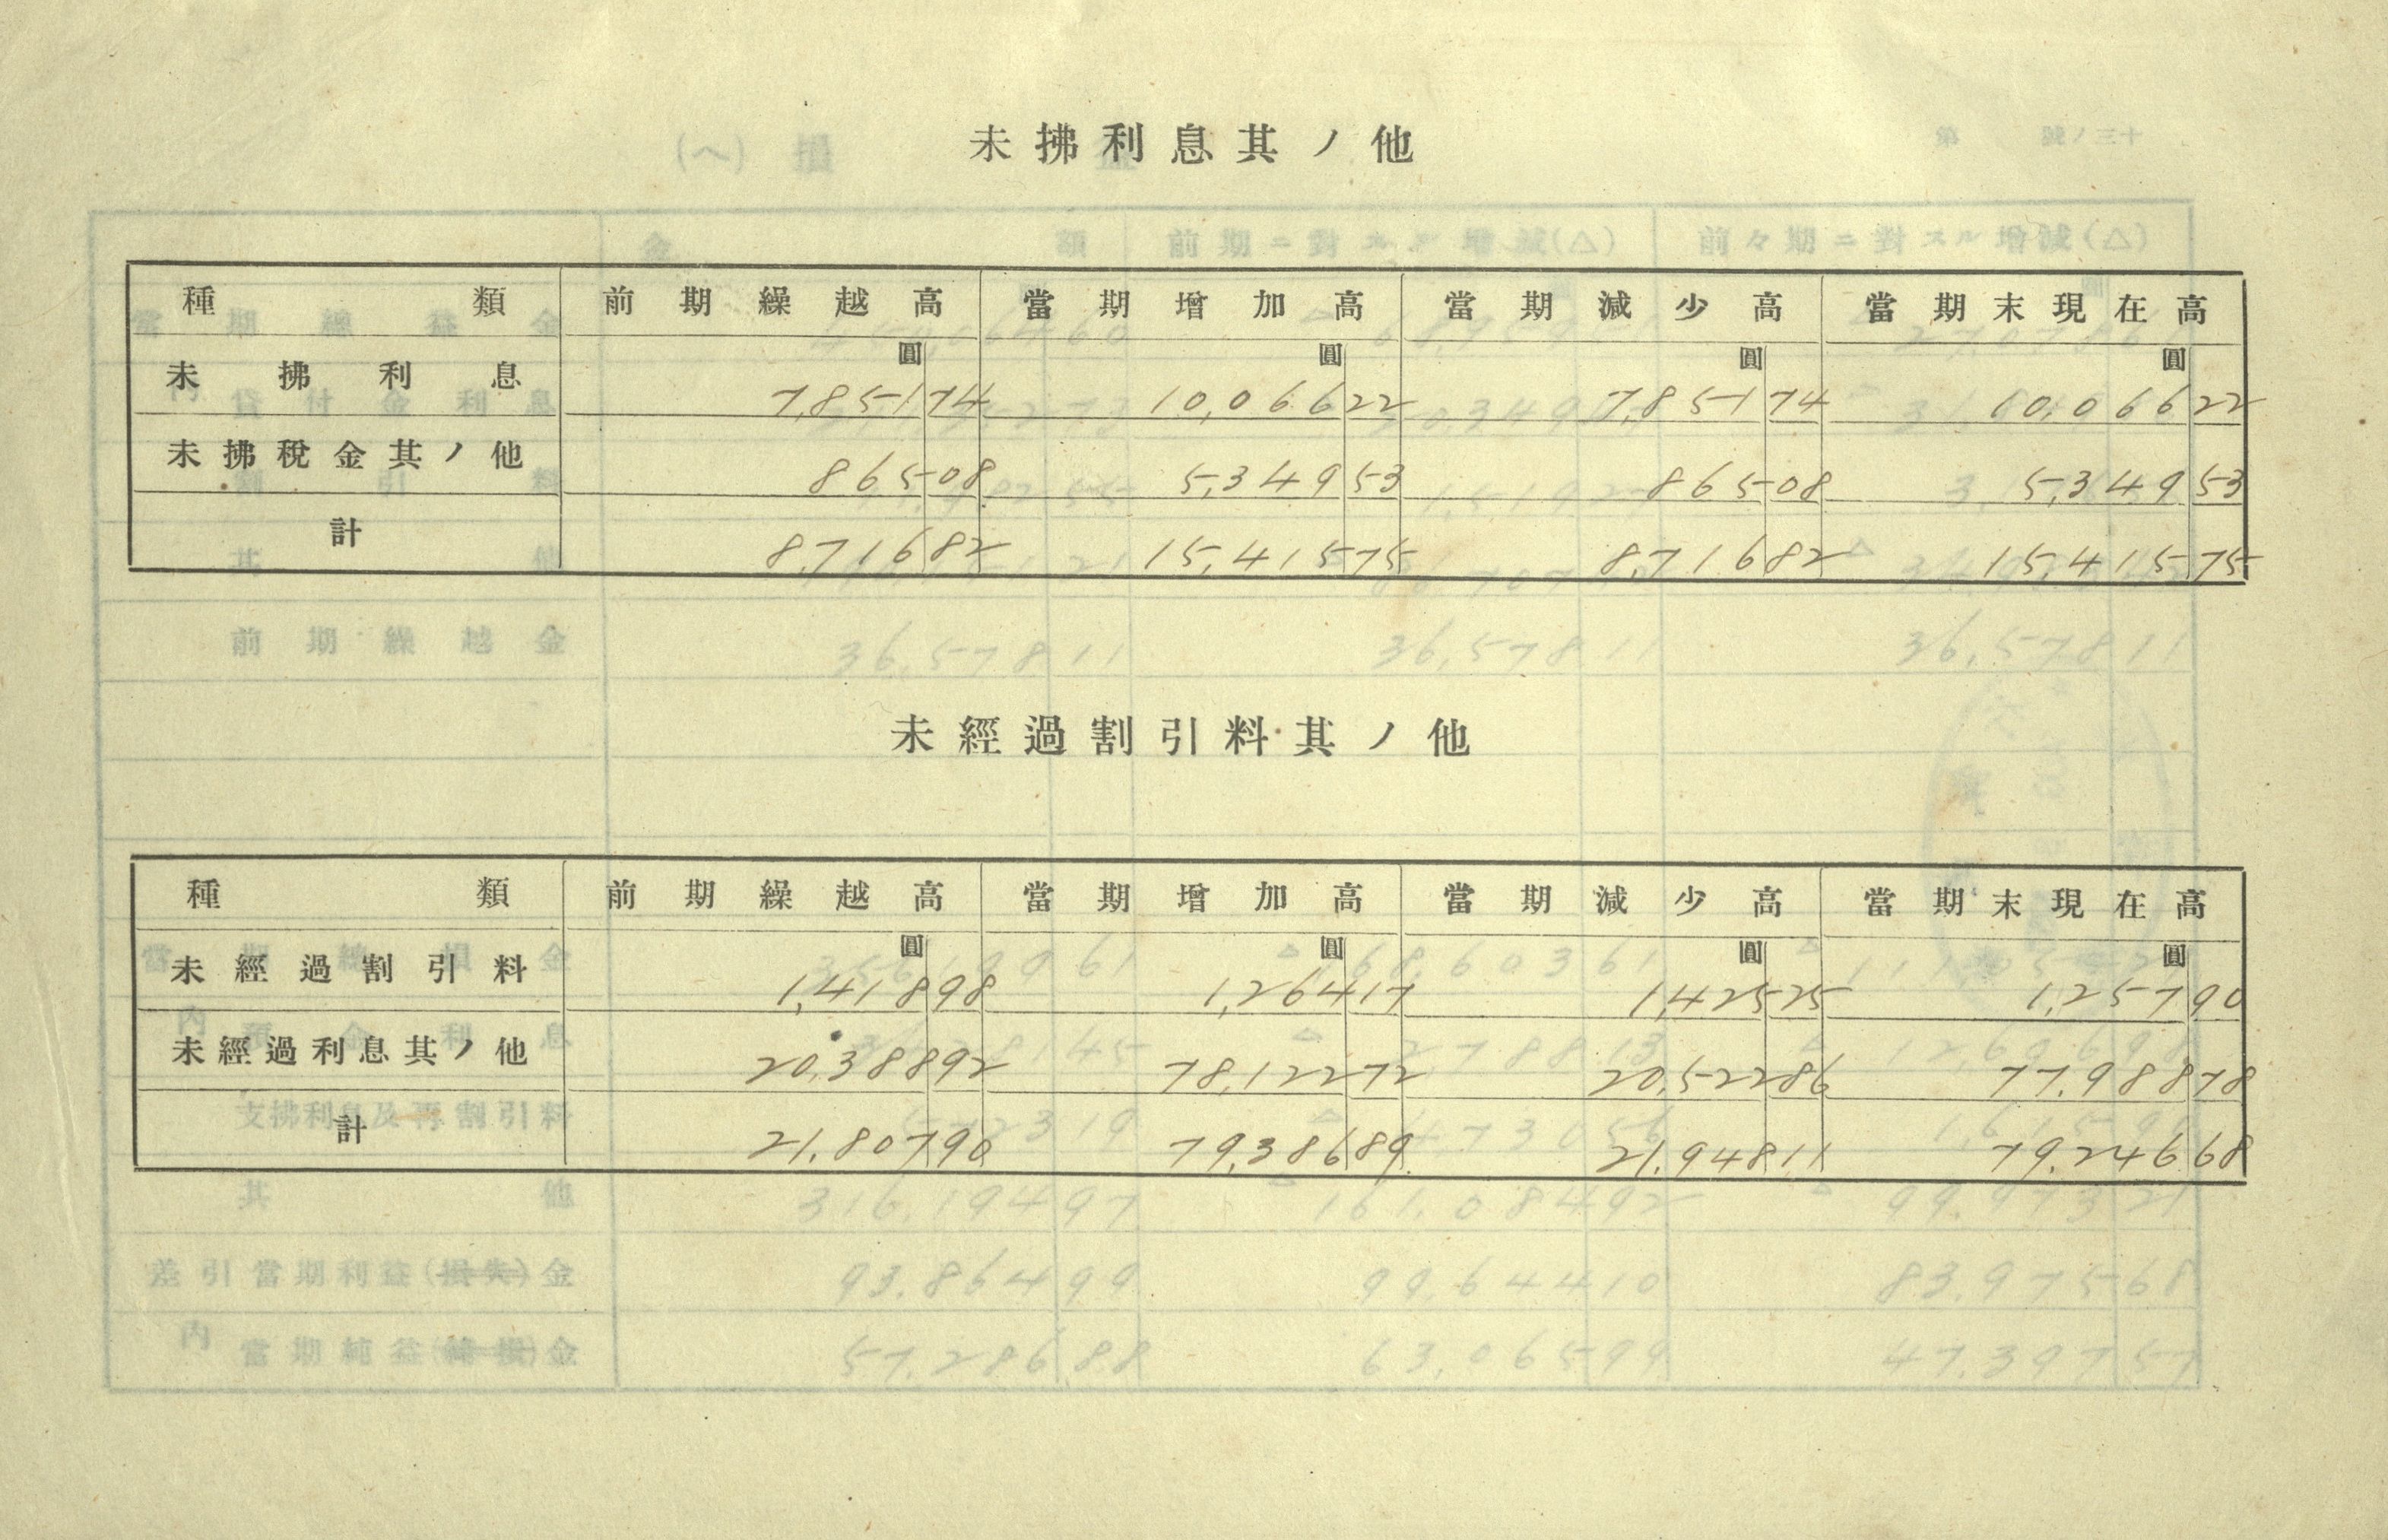 未拂利息其ノ他
種類 前期繰越高 當期增加高 當期減少高 當期末現在高
圓 圓 圓 圓
未拂利息 7,851 74 10,066 22 7,851 74 10,066 22
未拂稅金其ノ他 865 08 5,349 53 865 08 5,349 53
計 8,716 82 15,415 75 8,716 82 15,415 75
未經過割引料其ノ他
種類 前期繰越高 當期增加高 當期減少高 當期末現在高
圓 圓 圓 圓
未經過割引料 1,418 98 1,264 17 1,425 25 1,257 90
未經過利息其ノ他 20,388 92 78,122 72 20,522 86 77,988 78
計 21,807 90 79,386 89 21,948 11 79,246 68